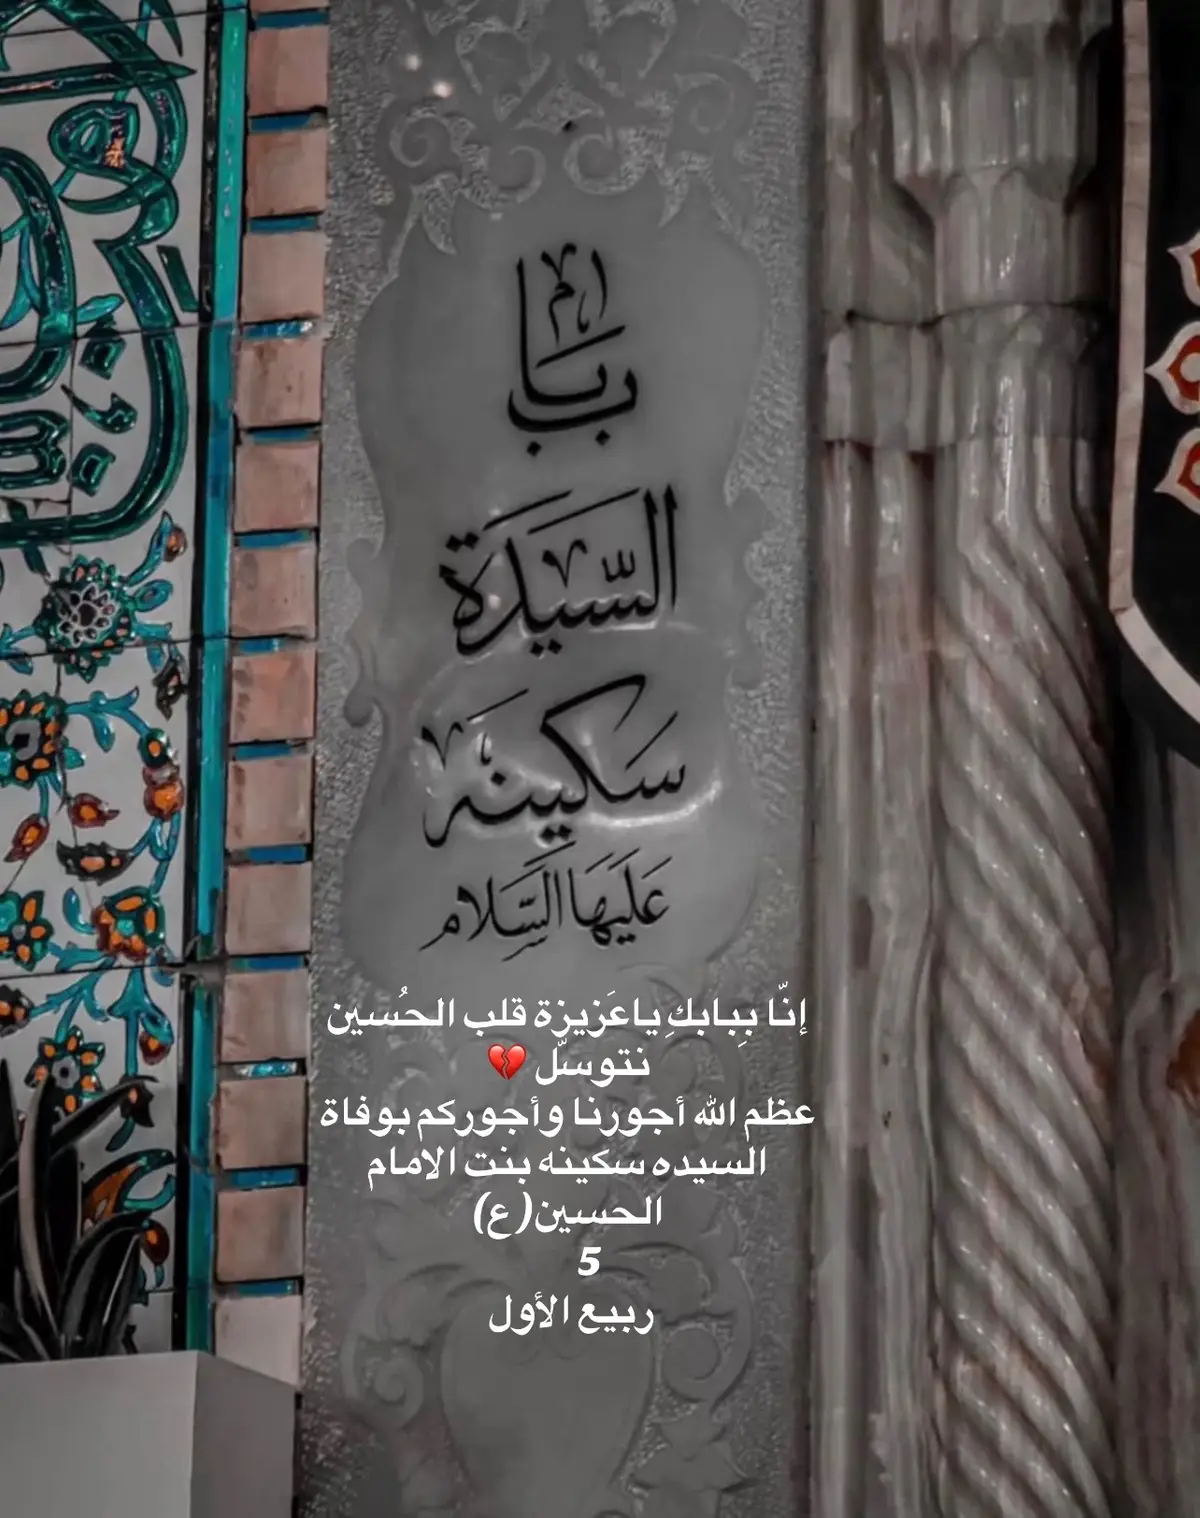 باب
السّيدة
سكينه
عَلَيهَا السَّلام
إنّا بِبابكِ ياعَزيزة قلب الحُسين
نتوسّل 💔
عظم الله أجورنا وأجوركم بوفاة
السيده سكينه بنت الامام
الحسين(ع)
5
ربيع الأول